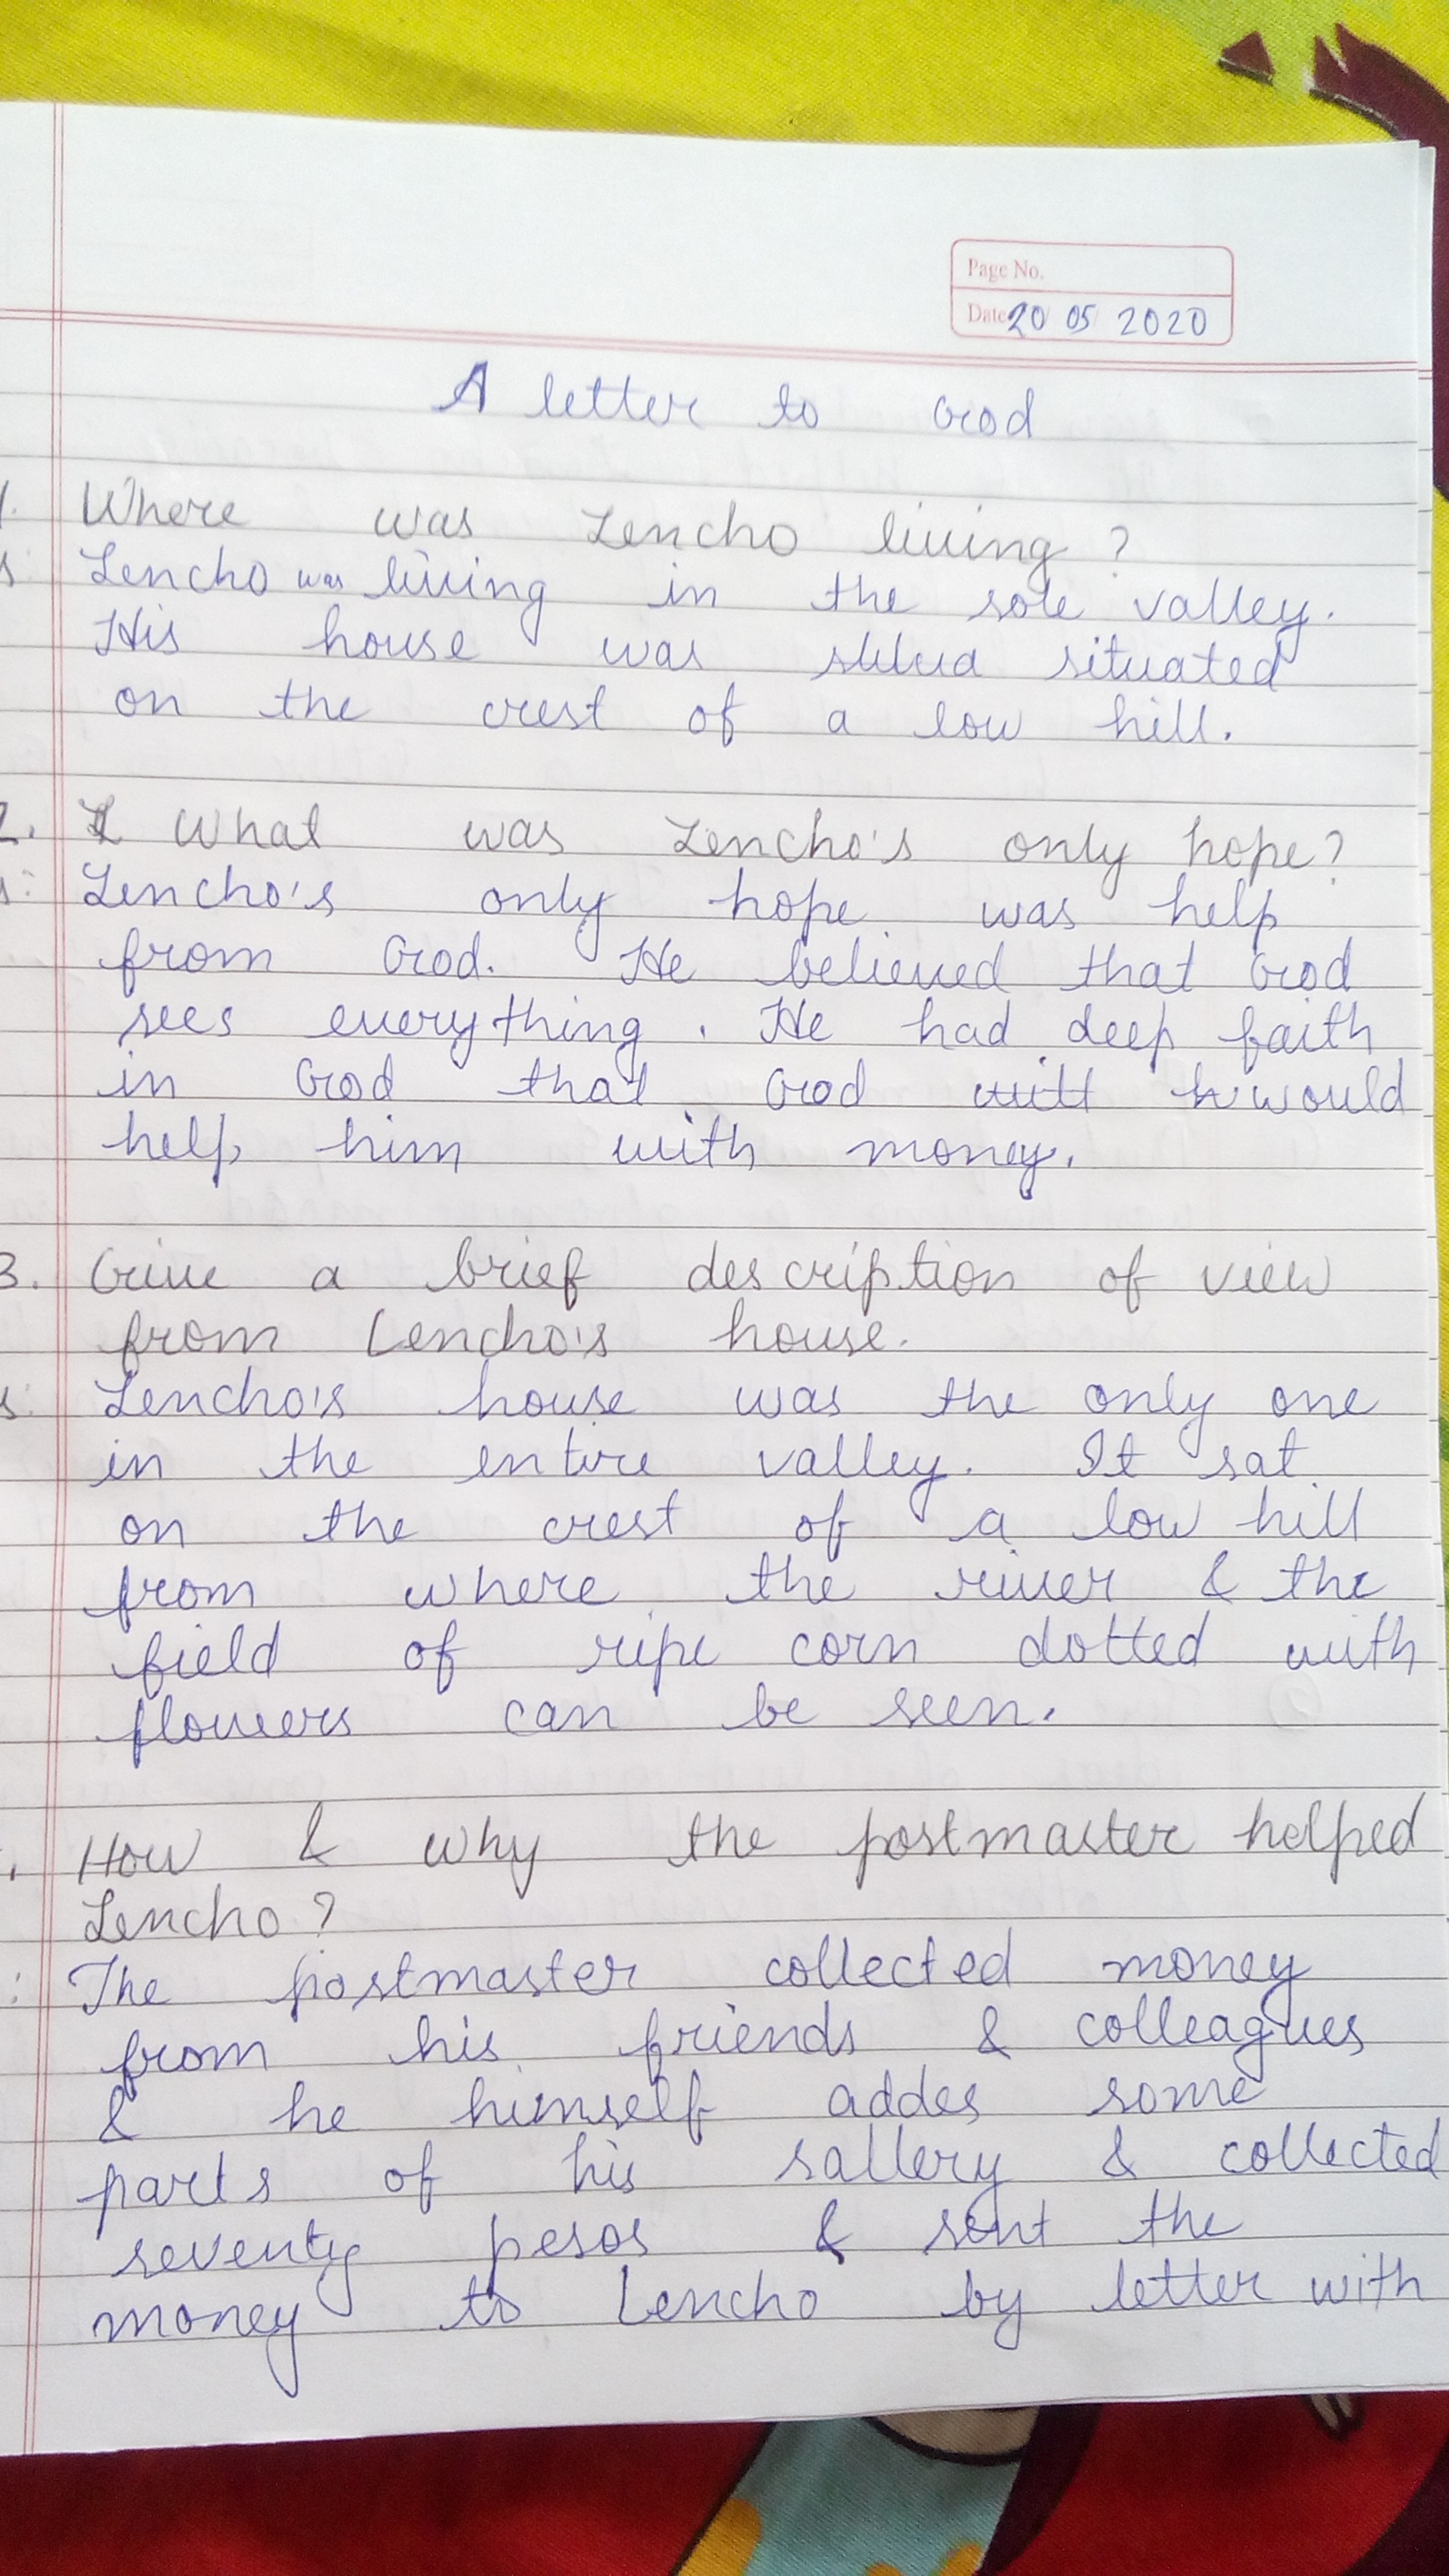 Page No.
Date 20 05 2020
A letter to God
1. Where was Lencho living ?
s: Lencho was living in the sole valley.
His house was situated
on the crest of a low hill.
2. What was Lencho's only hope?
s: Lencho's only hope was help
from God. He believed that God
sees everything. He had deep faith
in God that God will would
help him with money.
3. Give a brief description of view
from Lencho's house.
s: Lencho's house was the only one
in the entire valley. It sat
on the crest of a low hill
from where the river & the
field of ripe corn dotted with
flowers can be seen.
. How & why the postmaster helped
Lencho ?
: The postmaster collected money
from his friends & colleagues
& he himself addes some
parts of his sallery & collected
seventy pesos & sent the
money to Lencho by letter with